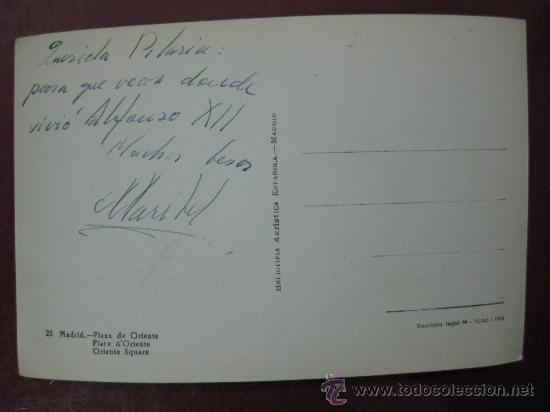 Querida Pilarin:
para que veas donde
vivió Alfonso XII
Muchos besos
Maribel
HELIOTIPIA ARTÍSTICA ESPAÑOLA.—MADRID
25 Madrid.—Plaza de Oriente
Place d'Oriente
Oriente Square
Depósito legal M -
www.todocoleccion.net